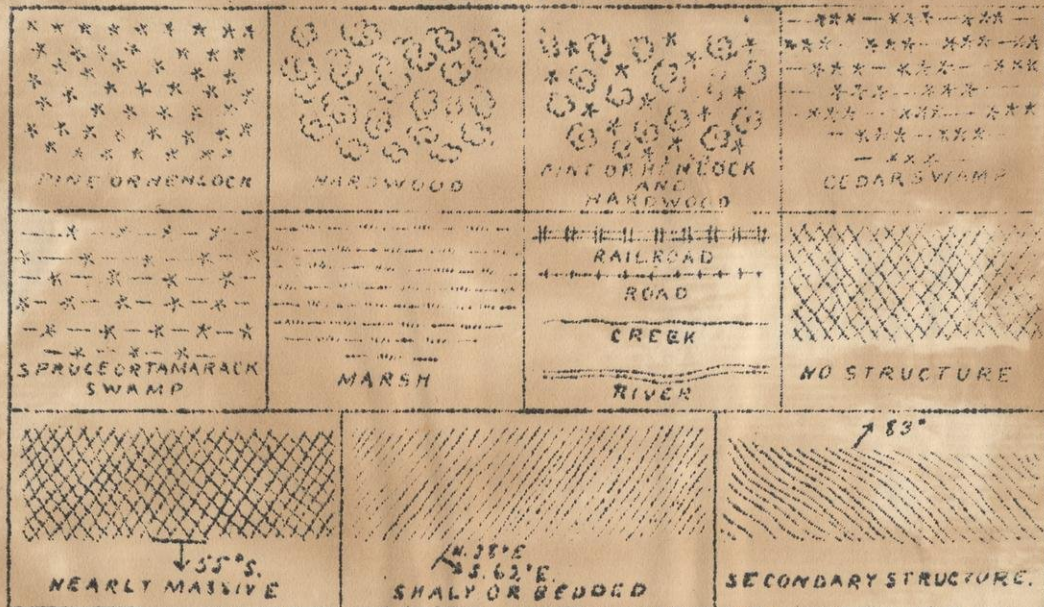 PINE OR HEMLOCK
HARDWOOD
PINE OR HEMLOCK
AND
HARDWOOD
CEDAR SWAMP
SPRUCE OR TAMARACK
SWAMP
MARSH
RAILROAD
ROAD
CREEK
RIVER
NO STRUCTURE
55° S.
NEARLY MASSIVE
N. 28° E
S. 62° E.
SHALY OR BEDDED
83°
SECONDARY STRUCTURE.